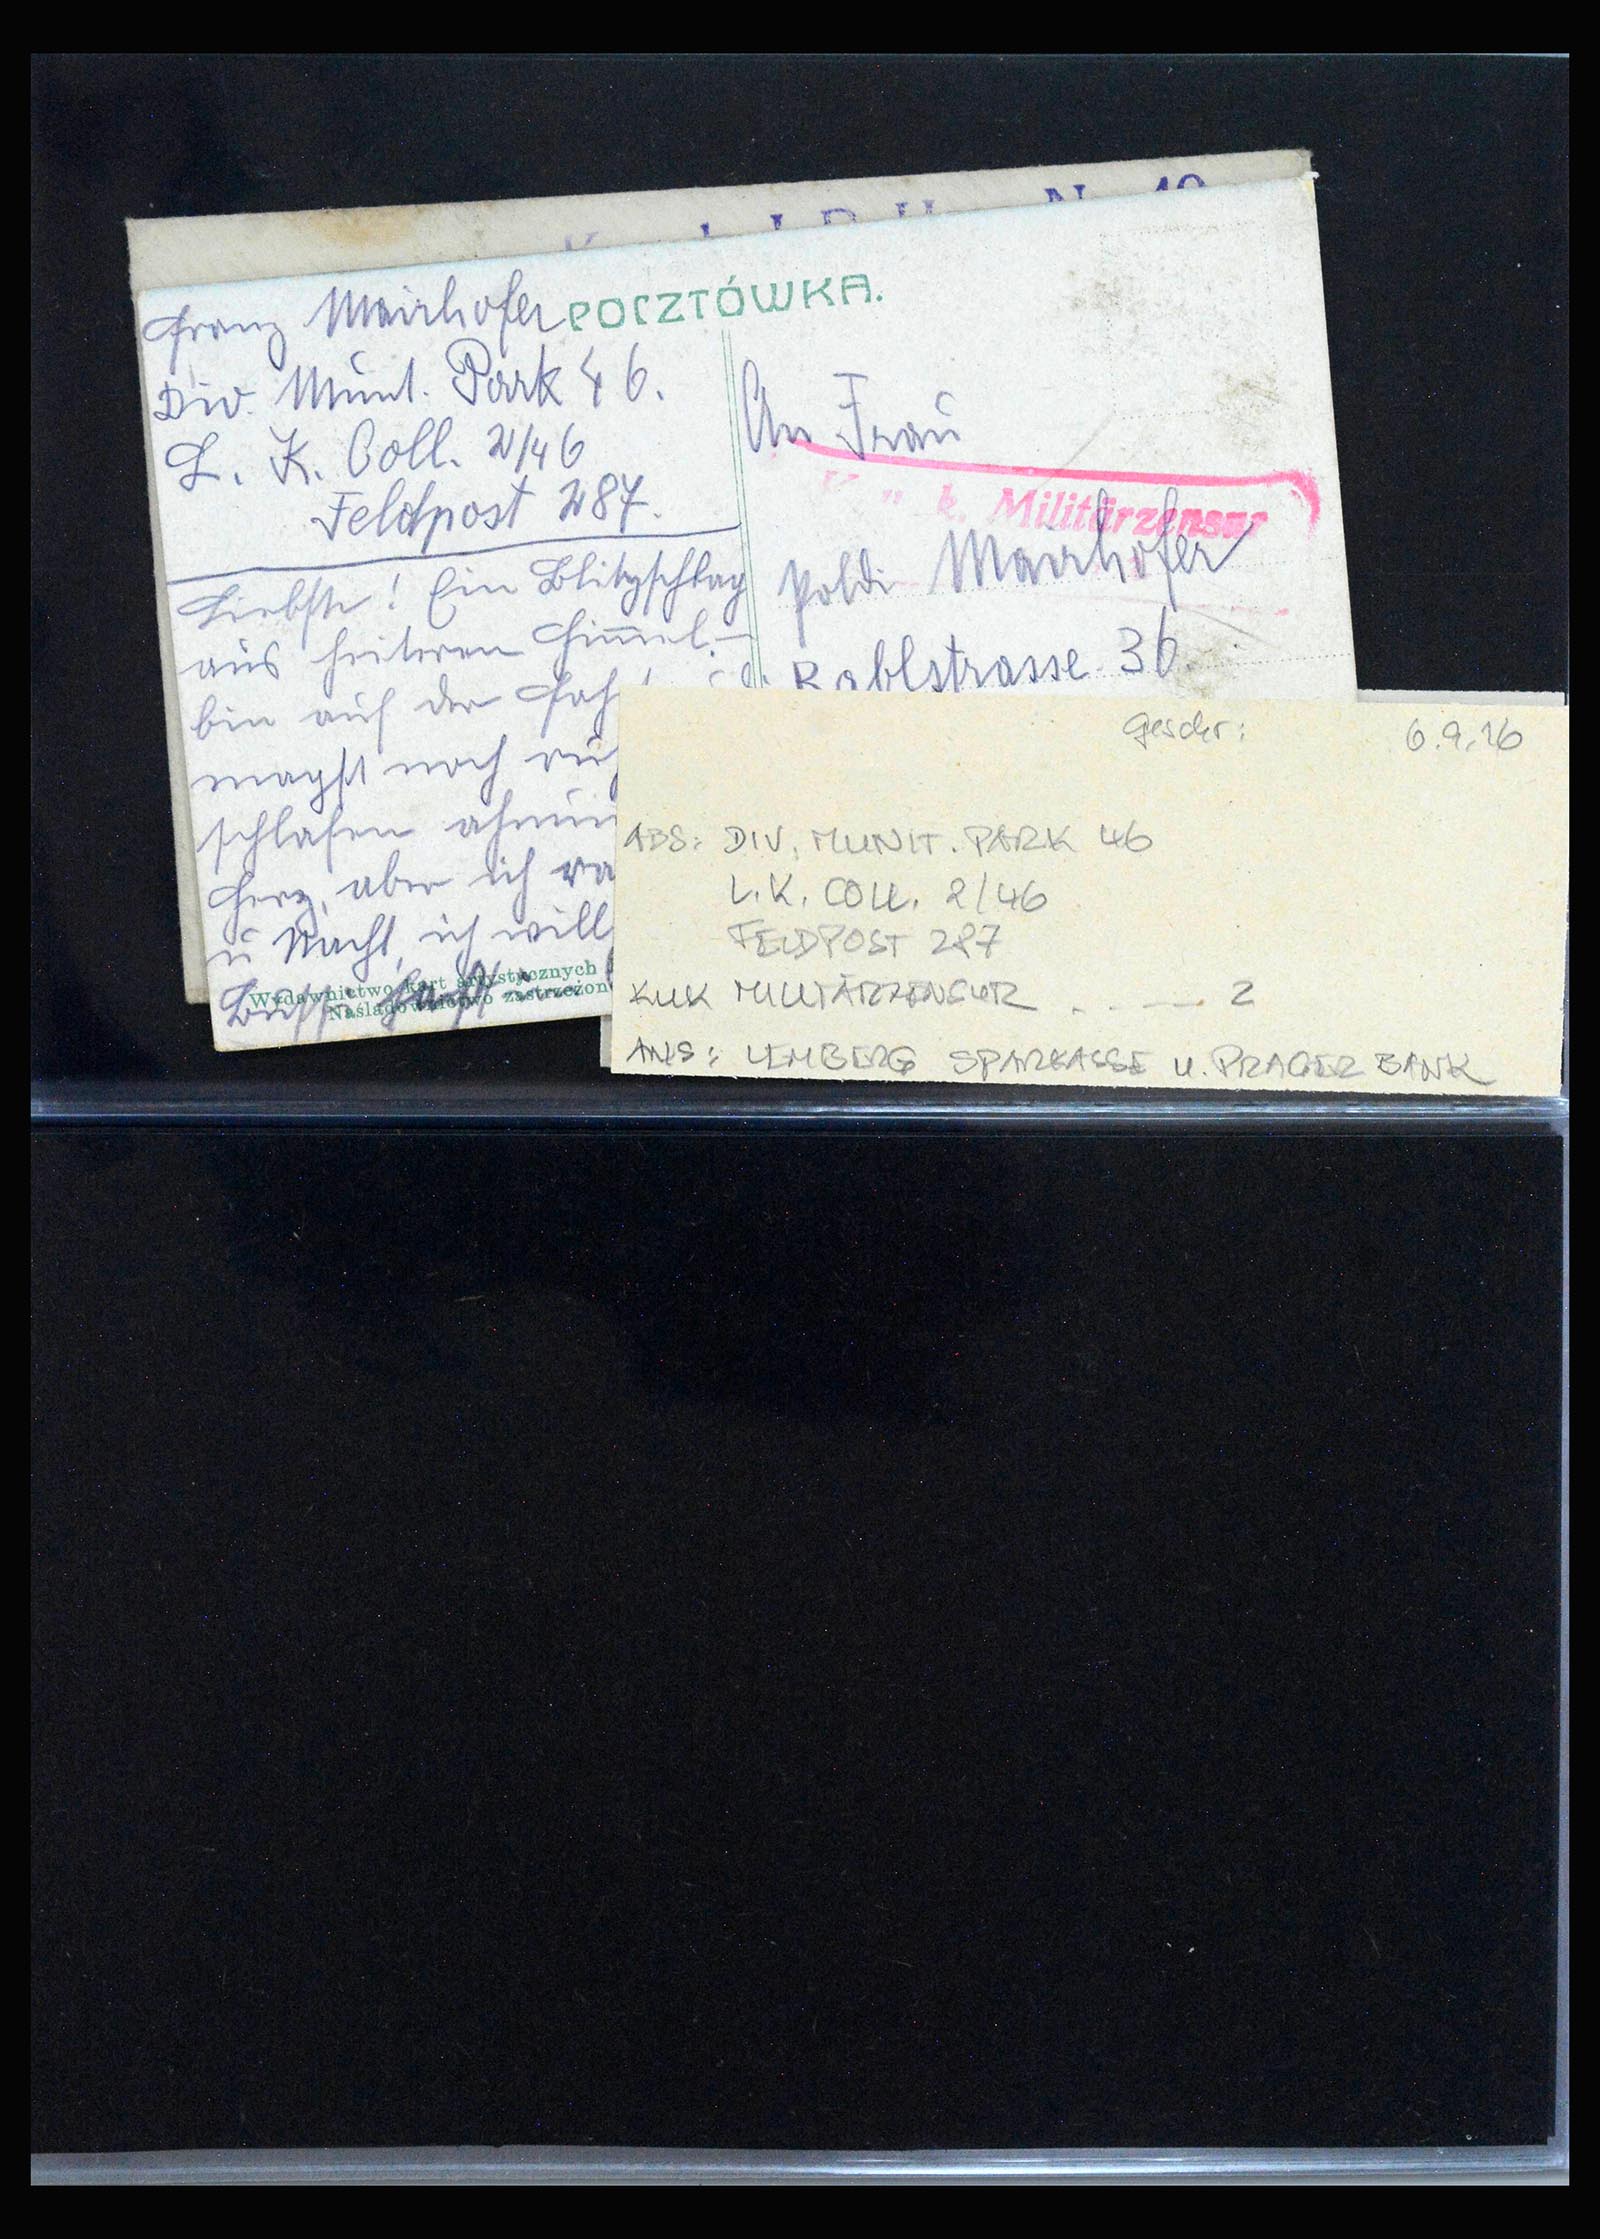 POCZTÓWKA.
Franz Mairhofer
Div. Munt. Park 46.
L. K. Coll. 2/46
Feldpost 287.
Liebste! Ein Blitzschlag
aus heiteren Himmel.–
bin auf der
magst noch
schlafen
Herz, aber ich
u Nacht, ich will
Wydawnictwo kart artystycznych
Naśladownictwo zastrzeżon
An Frau
k. Militärzensur
Poldi Mairhofer
Rablstrasse 36.
Geschr: 6.9.16
ABS: DIV. MUNIT. PARK 46
L.K. COLL. 2/46
FELDPOST 287
KUK MILITÄRZENSUR 2
ANS: LEMBERG SPARKASSE U. PRAGER BANK